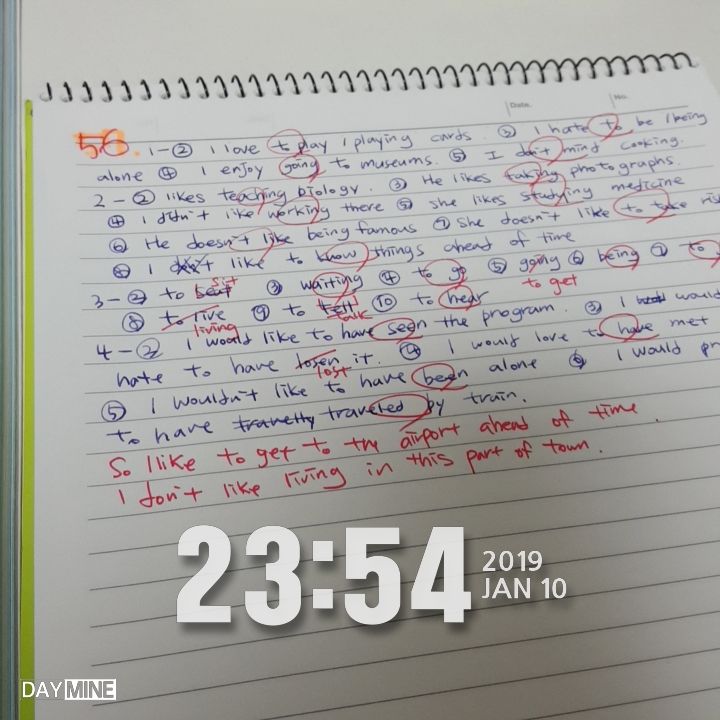 Date. No.
56. 1-② I love to play / playing cards. ③ I hate to be / being
alone ④ I enjoy going to museums. ⑤ I don't mind cooking.
2-② likes teaching biology. ③ He likes taking photographs.
④ I didn't like working there ⑤ she likes studying medicine
⑥ He doesn't like being famous ⑦ She doesn't like to take
⑧ I like to know things ahead of time
3-② to seat sit ③ waiting ④ to go ⑤ going ⑥ being ⑦ to
to get
⑧ to live living ⑨ to tell talk ⑩ to hear
4-② I would like to have seen the program. ③ I would
hate to have losen lost it. ④ I would love to have met
⑤ I wouldn't like to have been alone ⑥ I would
to have traveled by train.
So I like to get to the airport ahead of time.
I don't like living in this part of town.
23:54
2019
JAN 10
DAY MINE